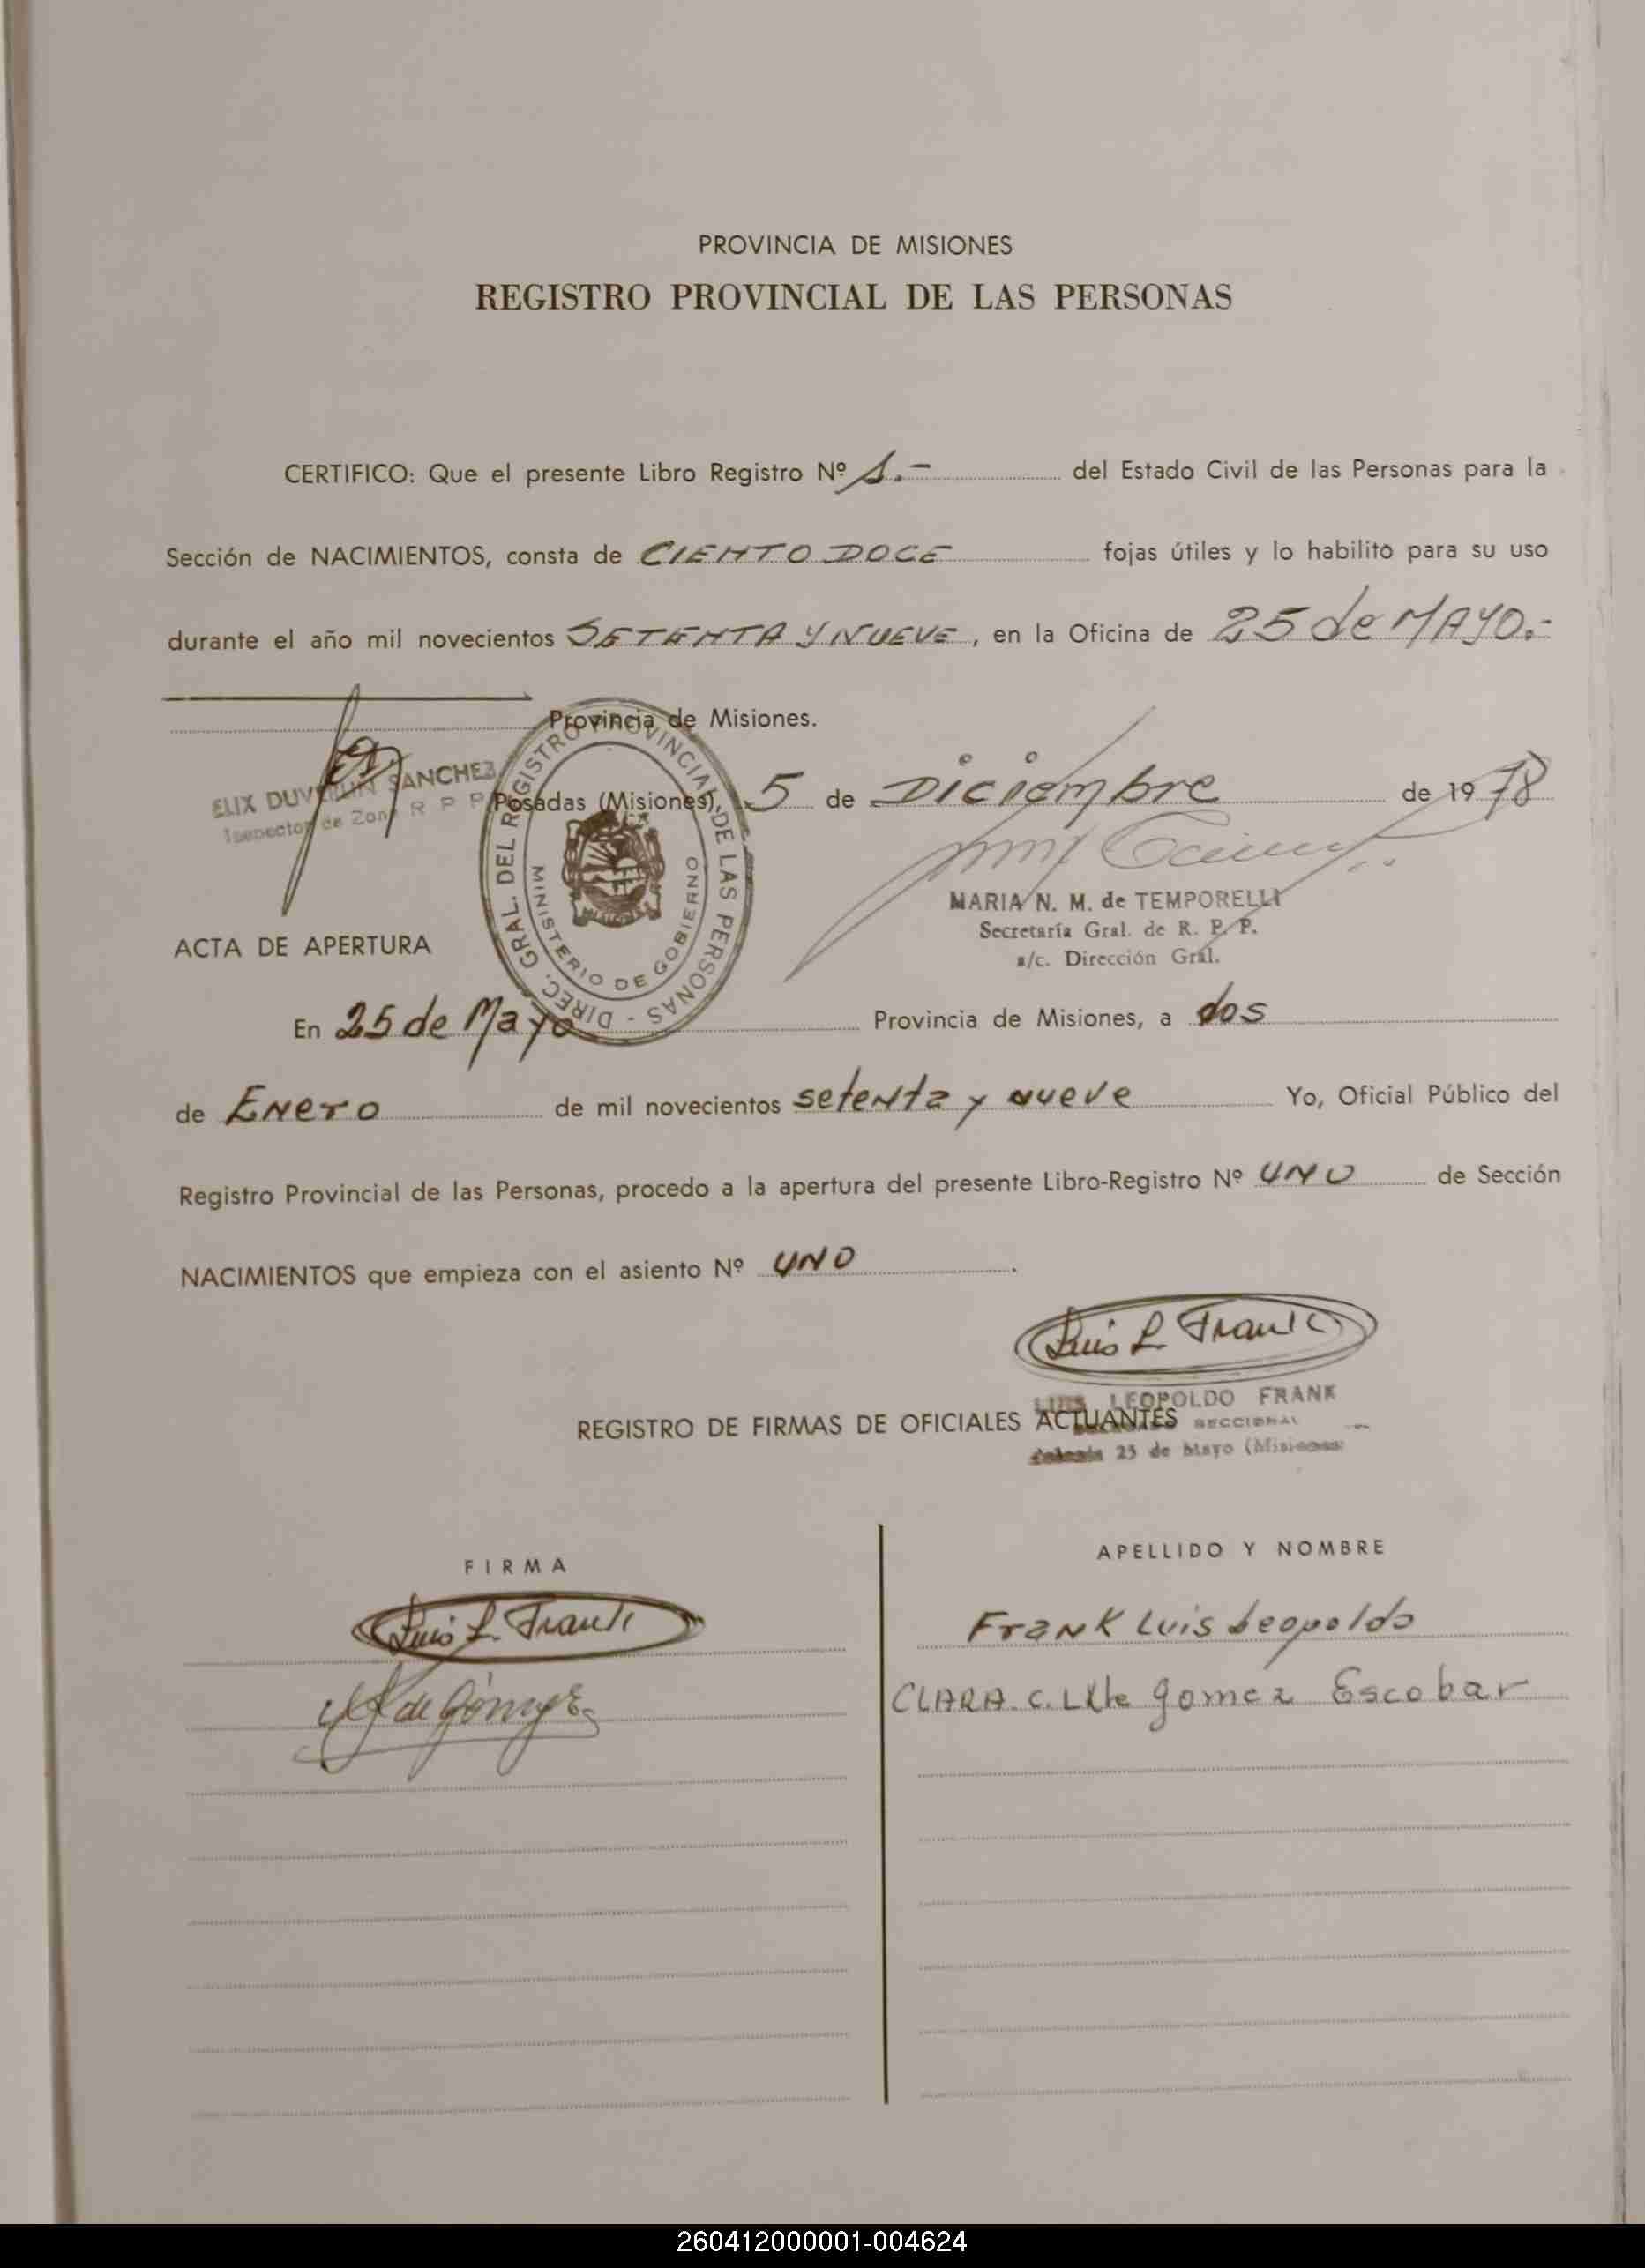 PROVINCIA DE MISIONES
REGISTRO PROVINCIAL DE LAS PERSONAS
CERTIFICO: Que el presente Libro Registro Nº 1.- del Estado Civil de las Personas para la
Sección de NACIMIENTOS, consta de CIENTO DOCE fojas útiles y lo habilito para su uso
durante el año mil novecientos SETENTA Y NUEVE, en la Oficina de 25 de MAYO.-
Provincia de Misiones.
ELIX SANCHEZ
Inspector de Zona R P P
Posadas (Misiones), 5 de Diciembre de 1978
DIREC. GRAL. DEL REGISTRO PROVINCIAL DE LAS PERSONAS -
MINISTERIO DE GOBIERNO
MARIA N. M. de TEMPORELLI
Secretaría Gral. de R. P. P.
a/c. Dirección Gral.
ACTA DE APERTURA
En 25 de Mayo Provincia de Misiones, a dos
de Enero de mil novecientos setenta y nueve Yo, Oficial Público del
Registro Provincial de las Personas, procedo a la apertura del presente Libro-Registro Nº UNO de Sección
NACIMIENTOS que empieza con el asiento Nº UNO.
Luis L. Frank
LUIS LEOPOLDO FRANK
REGISTRO DE FIRMAS DE OFICIALES ACTUANTES
SECCIONAL
Colonia 25 de Mayo (Misiones)
FIRMA
APELLIDO Y NOMBRE
Luis L. Frank
Frank Luis Leopoldo
de Gómez E
CLARA. C. de Gomez Escobar
260412000001-004624